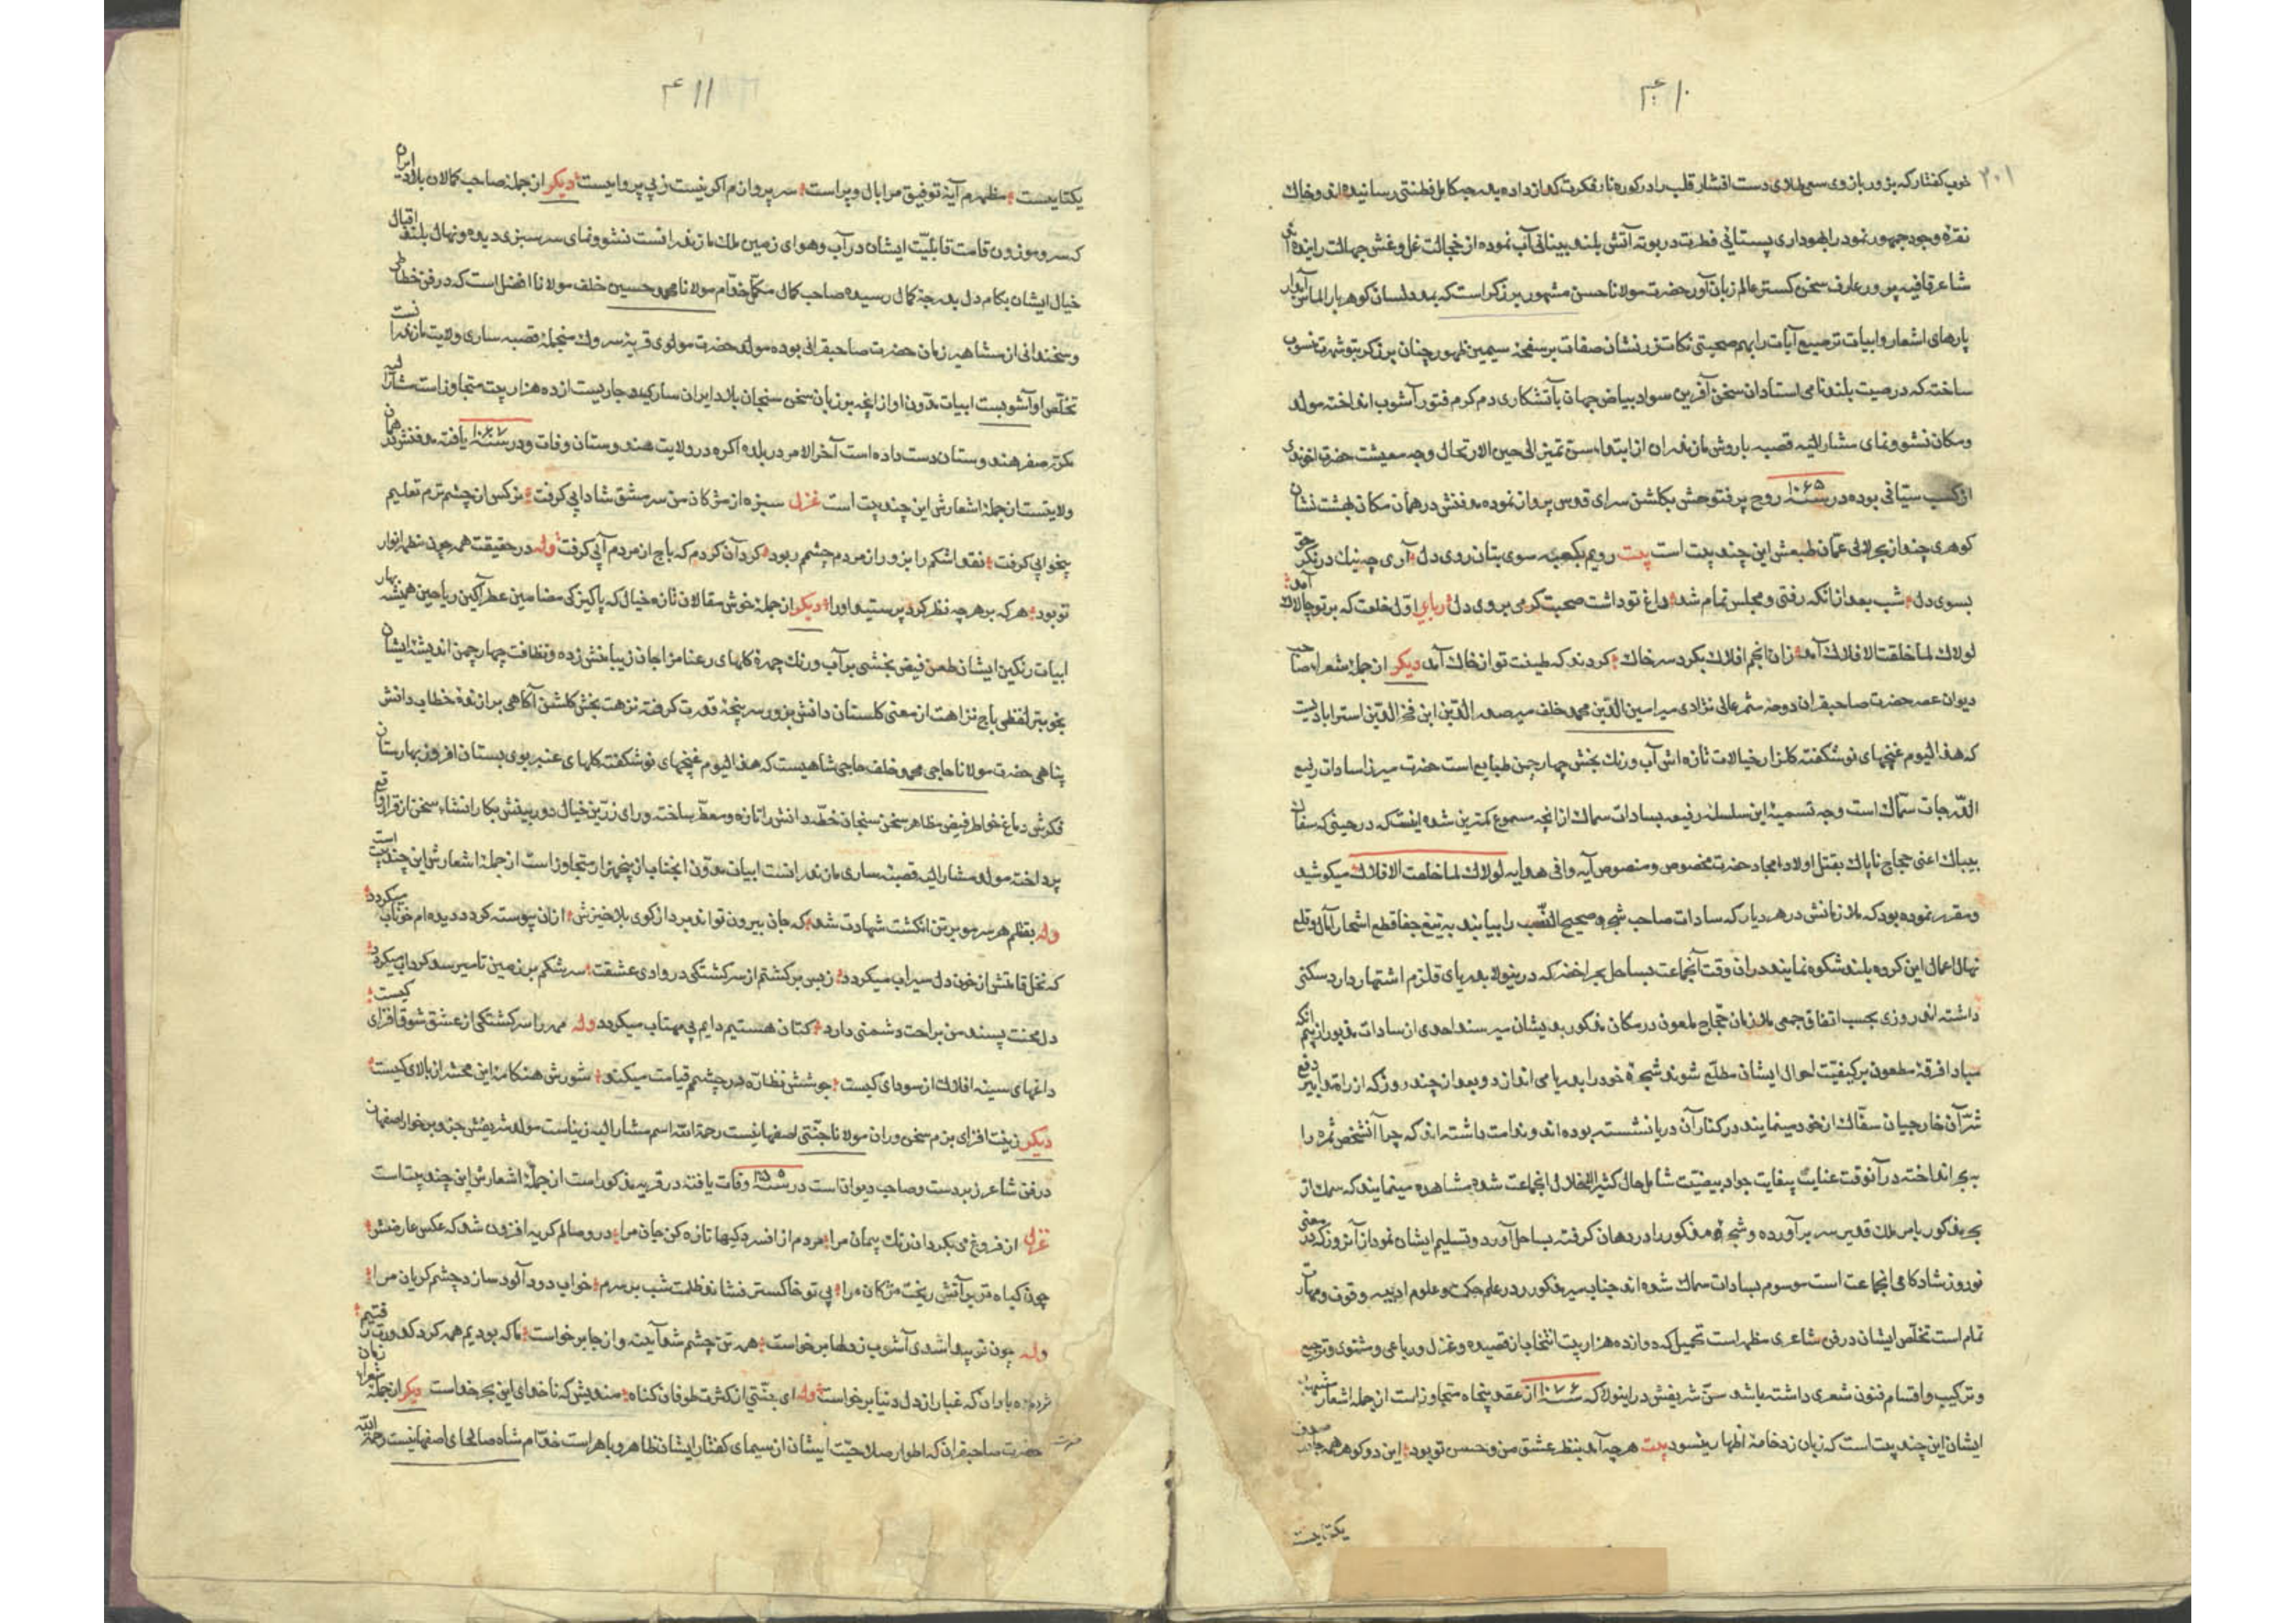 ۴۱۰
۲۰۱
خوب گفتار که بزور بازوی سعی طلای دست افشار قلب را در کوره نار فکرت گداز داده بدرجه کامل فطنتی رسانیده اند و خاک
نقره وجود جمهور نمود را بهوداری پستانی فطرت در بوته آتش بلند بینائی آب نموده از خجالت غل و غش جهالت
شاعر قافیه پرور عارف سخن گستر عالم زبان آور حضرت مولانا حسن مشهور بزرگر است که بمدد لسان گوهر بار الماس آبدار
پارهای اشعار و ابیات ترصیع آیات را بهم صحبتی نکات زر نشان صفات بر صفحه سیمین ظهور چنان بزرگر بتو شهرت منسوب
ساخته که در صیت بلند نامی استادان سخن آفرین سواد بیاض جهان بآتشکاری دم گرم فتور آشوب انداخته مولد
و مکان نشو و نمای مشار الیه قصبه بارفروش مازندران از ابتداء سن تمیز الی حین الارتحال وجه معیشت حضرت اخوندی
از کسب بوده در سنه ۱۰۶۵ روح پر فتوحش بگلشن سرای قدس پرواز نموده مدفنش در همان مکان بهشت نشان
گوهری چند از بحر لآلی عمان طبعش این چند بیت است بیت رویم بکعبه سوی بتان روی دل آری چنینک در نگر حق
بسوی دل شب بعد از انکه رفتی و مجلس تمام شد داغ تو داشت صحبت گرمی بروی دل رباعی اول خلعت که بر تو چالاک آمد
لولاک لما خلقت الافلاک آمد زان انجم افلاک بگرد سر خاک گردند که طینت تو از خاک آمد دیگر از جمله شعراء صاحب
دیوان عصر حضرت صاحبقران دوحه شمر عالی نژادی میر امین الدین محمد خلف میر صدر الدین ابن فخر الدین استرابادیست
که هذا الیوم غنچهای نوشکفته گلزار خیالات تازه اش آب و رنگ بخش چهار چمن طبایع است حضرت میر از سادات رفیع
الدرجات سماک است وجه تسمیه این سلسله رفیعه بسادات سماک از انچه مسموع کمترین شده اینست که در حینی که سفاک
بیباک اعنی حجاج ناپاک بقتل اولاد امجاد حضرت مخصوص و منصوص آیه وافی هدایه لولاک لما خلقت الافلاک میکوشید
و مقرر نموده بود که ملازمانش در هر دیار که سادات صاحب شجره صحیح النسب را بیابند به تیغ جفا قطع اشجار آمال و قلع
نهال اعمال این گروه بلند شکوه نمایند در ان وقت آنجماعت بساحل بحر اخضر که درینولا بدریای قلزم اشتهار دارد سکنی
داشته اند روزی بحسب اتفاق جمعی ملازمان حجاج ملعون در مکان مذکور بدیشان میرسند احدی از سادات مذبور از بیم انکه
مبادا فرقه مطعون بر کیفیت احوال ایشان مطلع شوند شجره خود را بدریا می اندازد و بعد از چند روز که از راه تدابیر دفع
شر آن خارجیان سفاک از خود مینمایند در کنار آن دریا نشسته بوده اند و ندامت داشته اند که چرا آنشخص شجره را
به بحر انداخته در آنوقت عنایت بیغایت جواد بیضنت شامل حال کثیر الاختلال انجماعت شده مشاهده مینمایند که سمک از
بحر مذکور بامر ملک قدیر سر بر آورده و شجره مذکور را در دهان گرفته بساحل آورد و تسلیم ایشان نمود از آنروز که در معنی
نوروز شادکامی انجماعت است موسوم بسادات سماک شده اند جناب میر مذکور در علم حکمت و علوم ادبیه وقوف و مهارت
تمام است تخلص ایشان در فن شاعری مظهر است تحمیل که دوازده هزار بیت انتخاب از قصیده و غزل و رباعی و مثنوی و ترجیع
و ترکیب و اقسام فنون شعری داشته باشد سن شریفش در اینولا که سنه ۱۰۷۶ از عقد پنجاه متجاوز است از جمله اشعار مشهور
ایشان این چند بیت است که زبان زد خامه اظهار میشود بیت هر چه آمد بنظر عشق من و حسن تو بود این دو گوهر همه جا در صدف
یکتاییست
۴۱۱
یکتاییست مظهرم آیة توفیق مرا بال و پر است سر پروازم اگر نیست ز بی پرواییست دیگر از جمله صاحب کمالان بلاد ایران
که سرو موزون قامت قابلیت ایشان در آب و هوای زمین ملک مازندرانست نشو و نمای سر سبزی دیده و نهال بلند اقبال
خیال ایشان بکام دل بدرجه کمال رسیده صاحب کمال مکمل خدام مولانا محمد حسین خلف مولانا افضل است که در فن خطاطی
و سخندانی از مشاهیر زمان حضرت صاحبقرانی بوده مولد حضرت مولوی قریه سروک منجمله قصبه ساری ولایت مازندرانست
تخلص او آشوبست ابیات مدون او از انچه بر زبان سخن سنجان بلاد ایران ساری و جاریست از ده هزار بیت متجاوز است مشار الیه
مکرر سفر هندوستان دست داده است آخر الامر در بلده اگره در ولایت هندوستان وفات و در سنه یافته مدفنش در همان
ولایتست از جمله اشعارش این چند بیت است غزل سبزه از مژگان من سر مشق شادابی گرفت نرگس از چشم ترم تعلیم
بیخوابی گرفت نقد اشکم را بزور از مردم چشم ربود گرد آن گردم که باج از مردم آبی گرفت وله در حقیقت همه چون مظهر انوار
تو بود هر که بر هر چه نظر کرد پرستید او را دیگر از جمله خوش مقالان تازه خیال که پاکیزگی مضامین عطر آگین ریاحین همیشه بهار
ابیات رنگین ایشان طعن فیض بخشی بر آب و رنگ چهره گلهای رعنا مزاجان زیبا منش زده و نظافت چهار چمن اندیشه ایشان
بخوبتر لفظی باج نزاهت از معنی گلستان دانش بزور سر پنجه قدرت گرفته نزهت بخش گلشن آگاهی برازنده خطاب دانش
پناهی حضرت مولانا حاجی محمد خلف حاجی شاهیست که هذا الیوم غنچهای نوشکفته گلهای عنبر بوی بستان افروز بهارستان
فکرش دماغ خواطر فیض مظاهر سخن سنجان خطه دانش را تازه و معطر ساخته و رای زرین خیال دوربینش بکار انشاء سخن از قرار واقع
پرداخته مولد مشار الیه قصبه ساری مازندرانست ابیات مدون انجناب از پنجهزار متجاوز است از جمله اشعارش این چند بیت است
وله بقلم هر سر مو بر تن انگشت شهادت شد که جان بیرون تواند برد از کوی بلا خیزش ازان پیوسته گرد دیده ام خوناب میگردد
که نخل قامتش از خون دل سیراب میگردد ز بس برگشتم از سرگشتگی در وادی عشقت سرشکم بر زمین تا میرسد گرداب میگردد
دل محنت پسند من براحت دشمنی دارد کتان هستیم دایم پی مهتاب میگردد وله مهر را سرگشتگی از عشق شوق افزای کیست
داغهای سینه افلاک از سودای کیست جوشش نظاره در چشمم قیامت میکند شورش هنگامه این محشر از بالای کیست
دیگر زینت افزای بزم سخن وران مولانا جنتی اصفهانیست رحمة الله اسم مشار الیه زیناست مولد شریفش جز و برخوار اصفهان
در فن شاعر زبردست و صاحب دیوانست در سنه وفات یافته در قریه مذکور است از جمله اشعارش این چند بیت است
غزل از فروغ می بگردان رنگ پیمان مرا مردم از افسردگیها تازه کن جان مرا در وصالم گریه افزون شد که عکس عارضش
چون گیاه تر بر آتش ریخت مژگان مرا بی تو خاکستر فشاند ظلمت شب بر سرم خواب دود آلود سازد چشم گریان مرا
وله چون تو پیدا شدی آشوب ز دلها برخواست همه تن چشم شد آیینه و از جا برخواست ما که بودیم همه گرد کدورت رفتیم
مژده یاران که غبار از دل دنیا برخواست وله ای جنتی از کثرت طوفان گناه مندیش که ناخدای این بحر خداست دیگر از جمله شعراء زمان
حضرت صاحبقران که اطوار صلاحیت ایشان از سیمای گفتار ایشان ظاهر و باهر است خدام شاه صالحای اصفهانیست رحمة الله